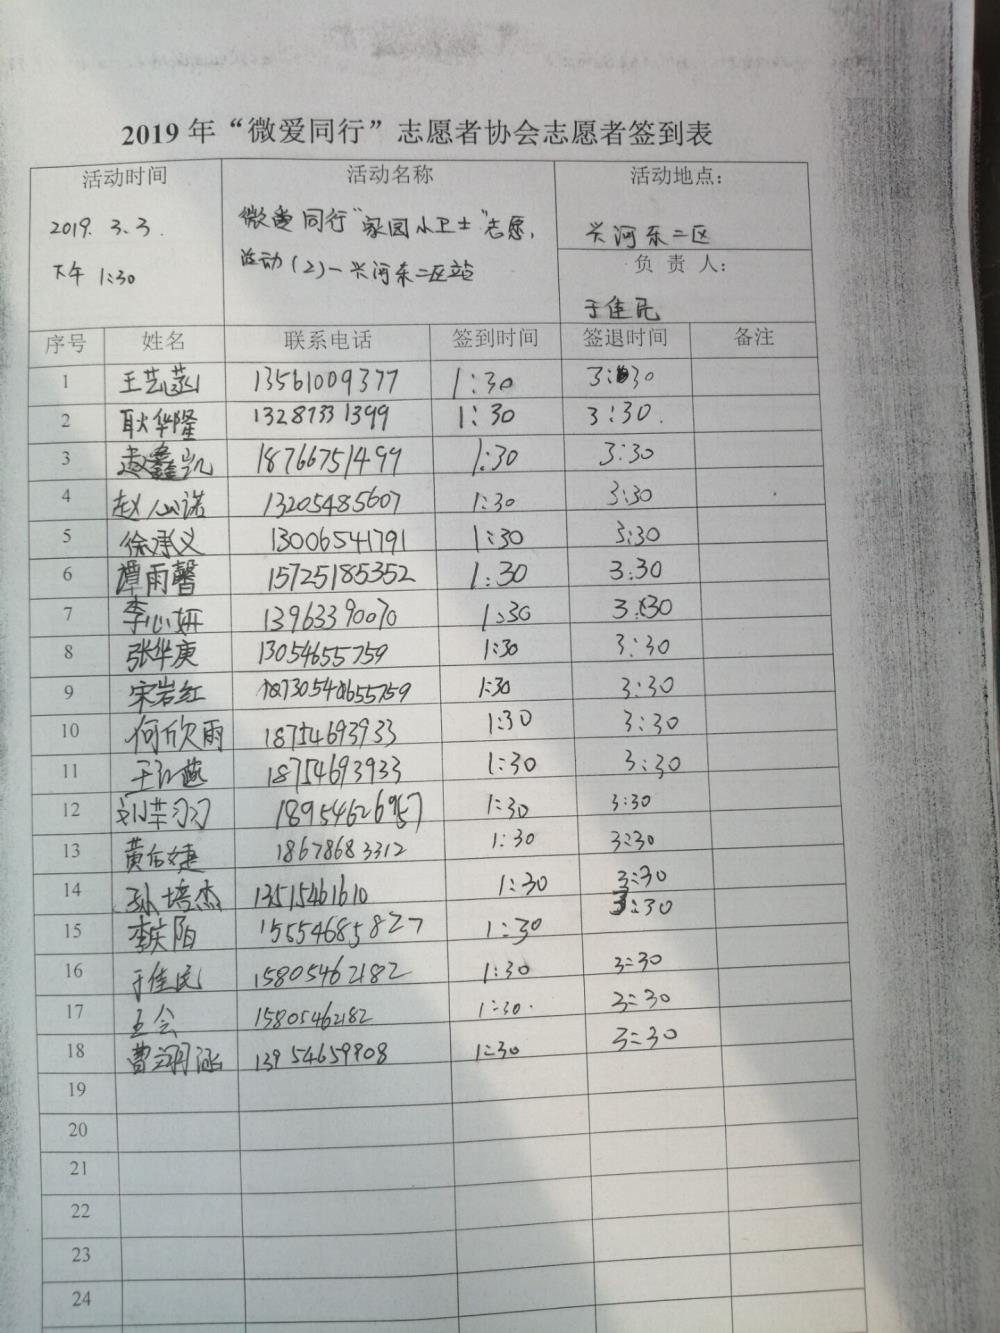 2019 年“微爱同行”志愿者协会志愿者签到表
活动时间 活动名称 活动地点：
2019. 3. 3. 微爱同行“家园小卫士”志愿, 兴河东二区
下午 1:30 活动(2)—兴河东二区站 负 责 人：
于佳民
序号 姓名 联系电话 签到时间 签退时间 备注
1 王艺菡 13561009377 1:30 3:30
2 耿华隆 13287331399 1:30 3:30.
3 赵鑫凯 18766751499 1:30 3:30
4 赵心诺 13205485607 1:30 3:30
5 徐承义 13006541791 1:30 3:30
6 谭雨馨 15725185352 1:30 3:30
7 李心妍 13963390070 1:30 3:30
8 张华庚 13054655759 1:30 3:30
9 宋岩红 1:30 3:30
10 何欣雨 18754693933 1:30 3:30
11 王江燕 18754693933 1:30 3:30
12 1:30 3:30
13 18678683312 1:30 3:30
14 孙培杰 13515461610 1:30 3:30
15 李庆阳 15554685827 1:30 3:30
16 于佳民 15805462182 1:30 3:30
17 王会 15805462182 1:30. 3:30
18 曹翔涵 13954659908 1:30 3:30
19
20
21
22
23
24